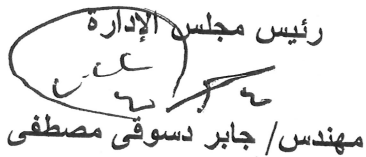 رئيس مجلس الإدارة
مهندس/ جابر دسوقى مصطفى